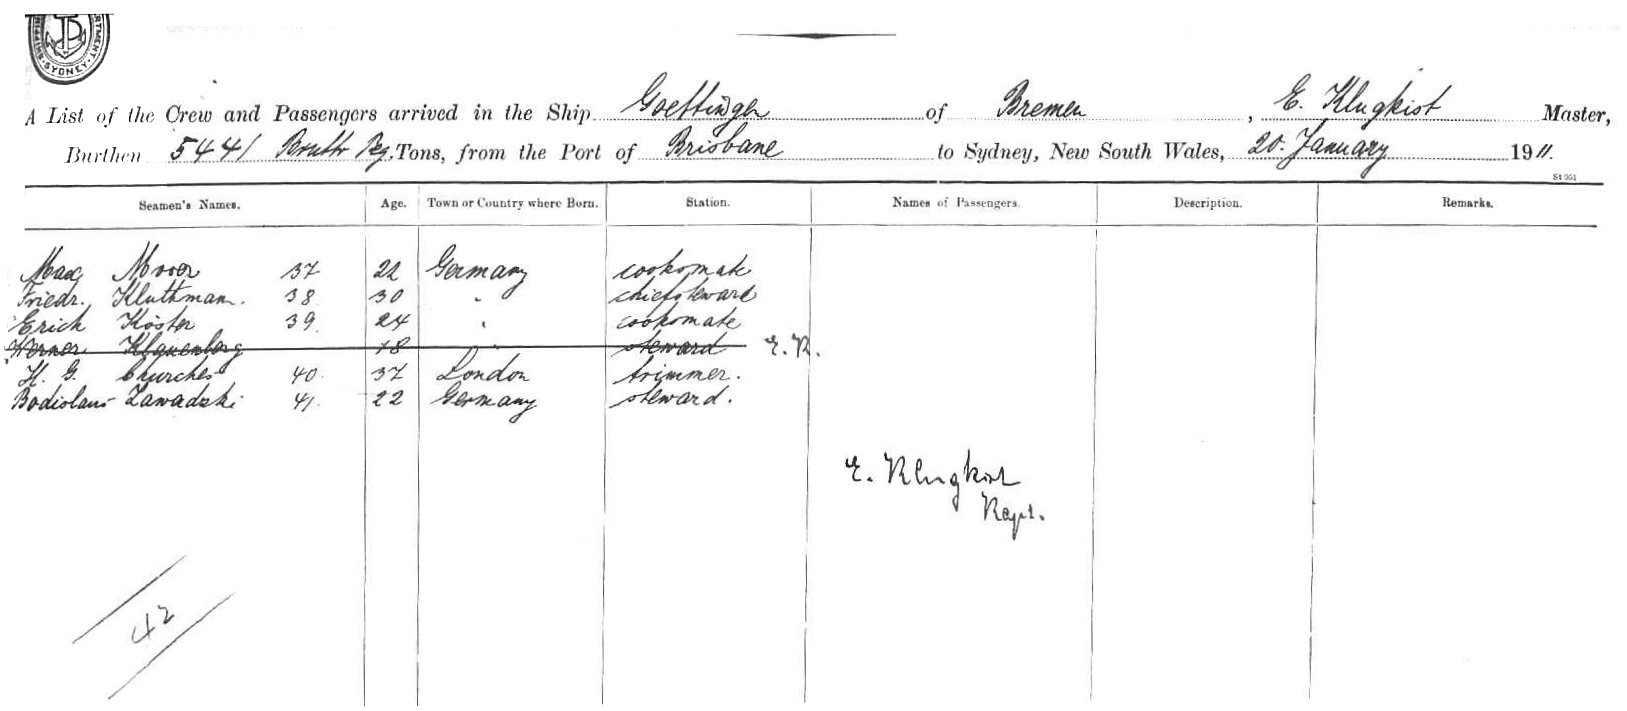 SYDNEY
A List of the Crew and Passengers arrived in the Ship Goettingen of Bremen, E. Klugkist Master,
Burthen 5441 Brutto Reg. Tons, from the Port of Brisbane to Sydney, New South Wales, 20. January 1911.
St 951
Seamen's Names. Age. Town or Country where Born. Station. Names of Passengers. Description. Remarks.
Max 37 22 Germany cooksmate
Friedr. Kluthmann. 38 30 " chiefsteward
Erich Köster 39 24 " cooksmate
Werner Klauenberg 18 " steward E. K.
H. G. Churches 40 37 London trimmer.
Bodislaus Zawadzki 41 22 Germany steward.
E. Klugkist
Kapt.
42